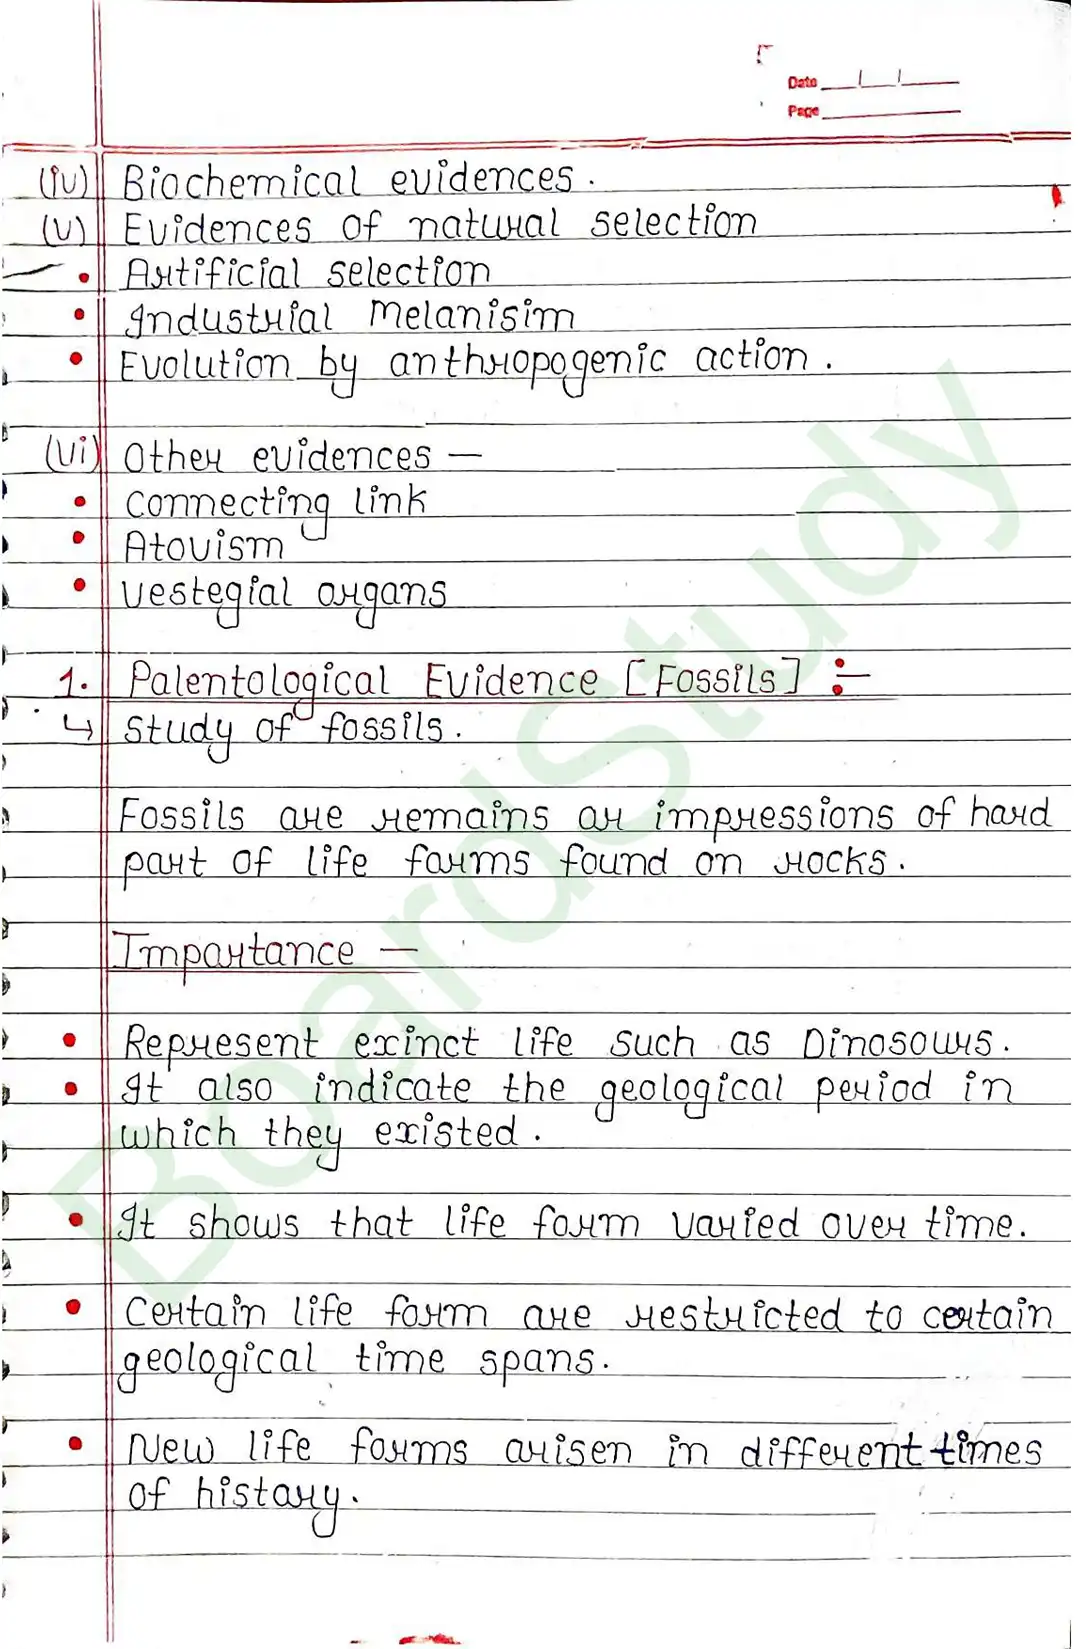 Date
Page
(iv) Biochemical evidences.
(v) Evidences of natural selection
• Artificial selection
• Industrial Melanisim
• Evolution by anthropogenic action.
(vi) Other evidences —
• Connecting link
• Atovism
• Vestegial organs
1. Palentological Evidence [Fossils] :-
↳ Study of fossils.
Fossils are remains or impressions of hard
part of life forms found on rocks.
Importance —
• Represent exinct life such as Dinosours.
• It also indicate the geological period in
which they existed.
• It shows that life form varied over time.
• Certain life form are restricted to certain
geological time spans.
• New life forms arisen in different times
of history.
BoardStudy